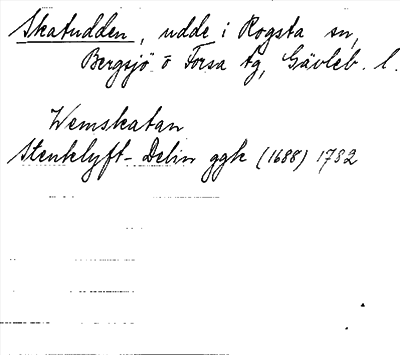 Skatudden, udde i Rogsta sn,
Bergsjö o Forsa tg, Gävleb. l.
Wemskatan
Stenklyft-Delin ggk (1688) 1782